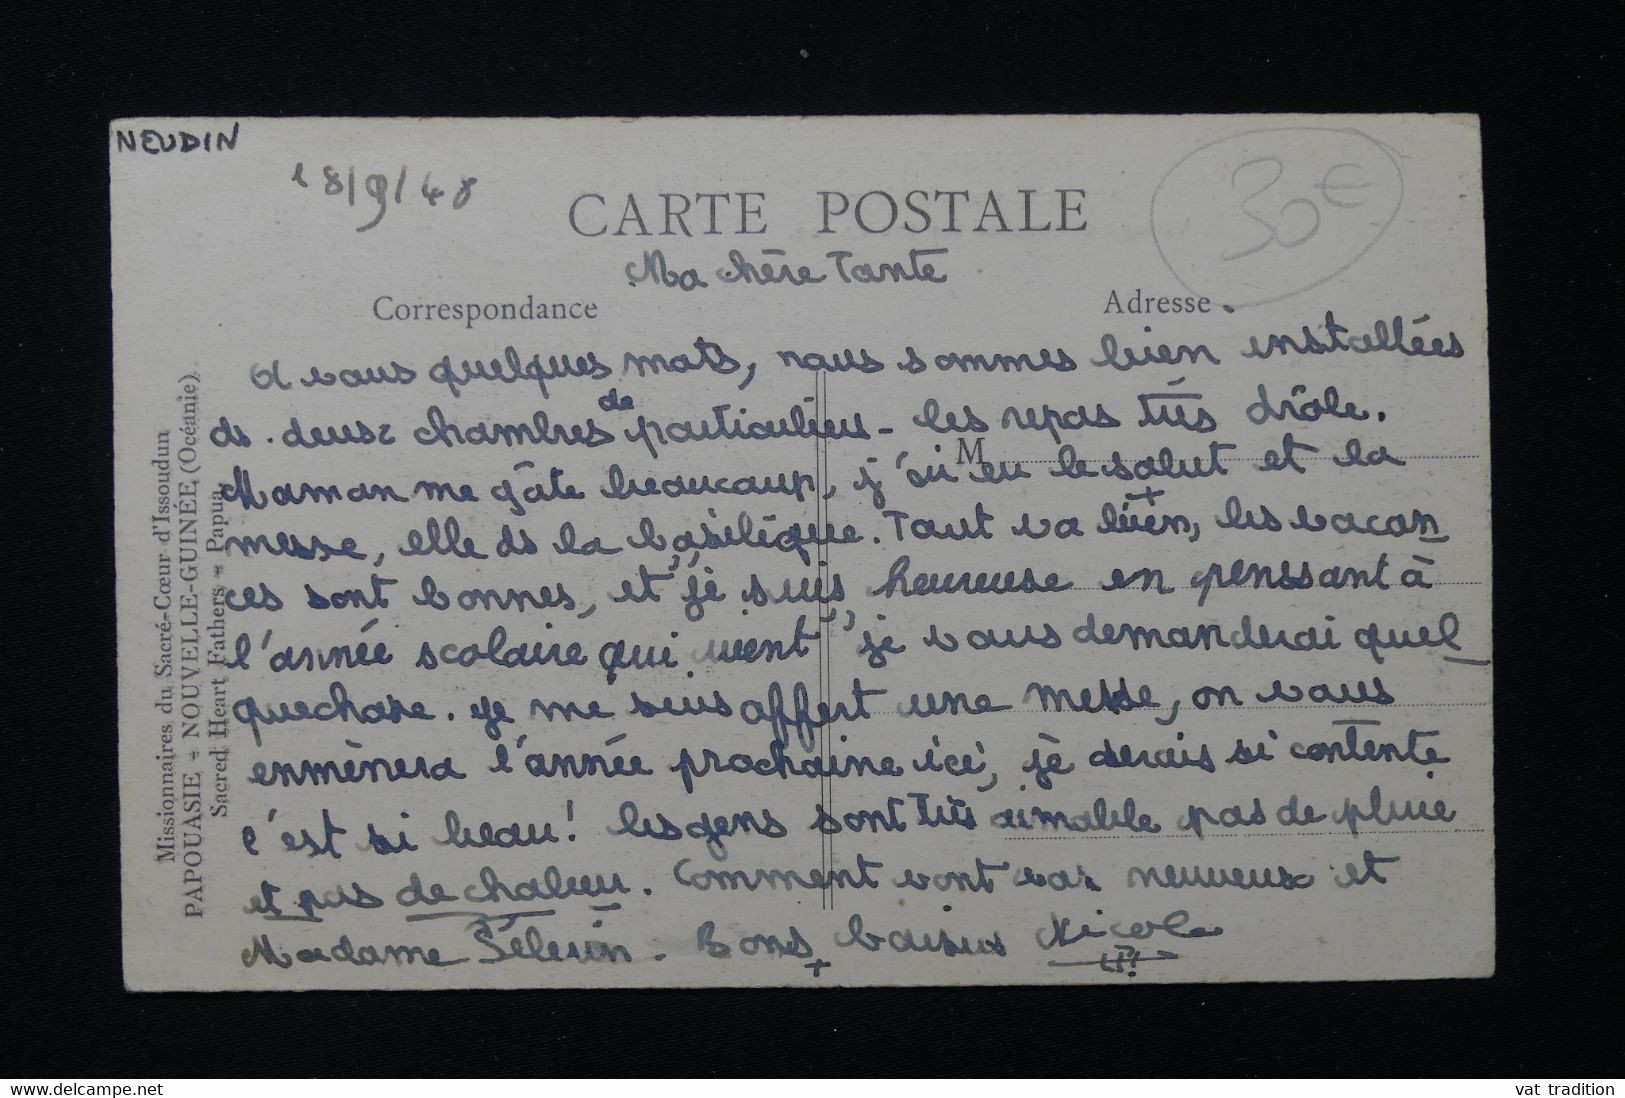 NEUDIN
18/9/48
30€
CARTE POSTALE
Ma chère Tante
Correspondance
Adresse
A vous quelques mots, nous sommes bien installées
ds. deux chambres de particulier - les repas très drôle.
M
Maman me gâte beaucoup, j'ai eu le salut et la
messe, elle ds la basilique. Tout va bien, les vacan
ces sont bonnes, et "je suis heureuse en penssant à
l'année scolaire qui vient" je vous demanderai quel
quechose. je me suis offert une messe, on vous
enmènera l'année prochaine ici, je serais si contente
c'est si beau! les gens sont très aimable pas de pluie
et pas de chaleur. Comment vont vos neuveux et
Madame Sélerin. Bons baisers Nicole
Missionnaires du Sacré-Cœur d'Issoudun
PAPOUASIE - NOUVELLE-GUINÉE (Océanie)
Sacred Heart Fathers - Papua
www.delcampe.net
vat tradition